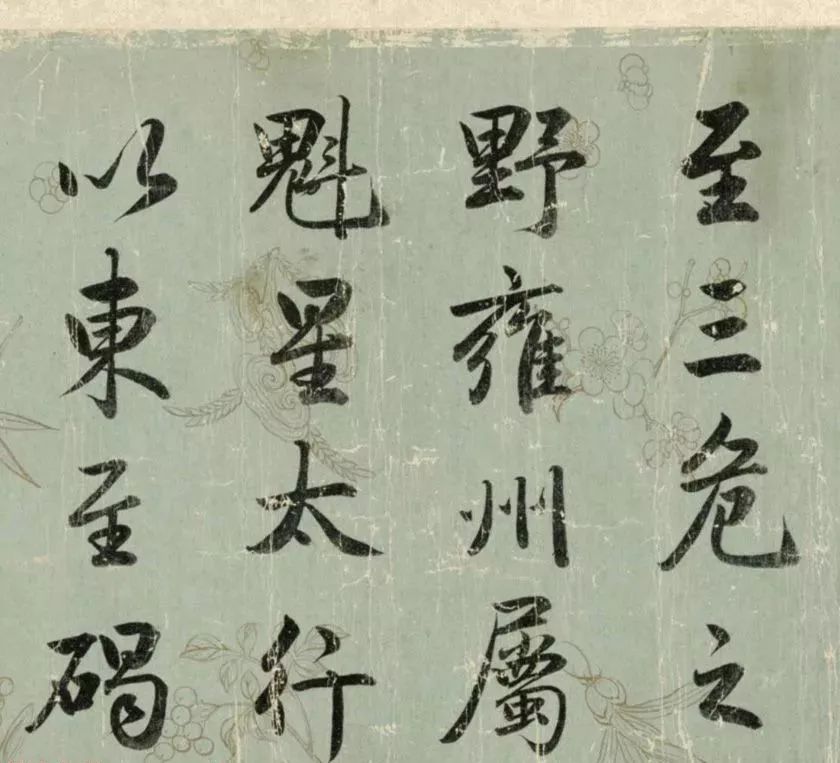 至三危之
野雍州屬
魁星太行
以東至碣